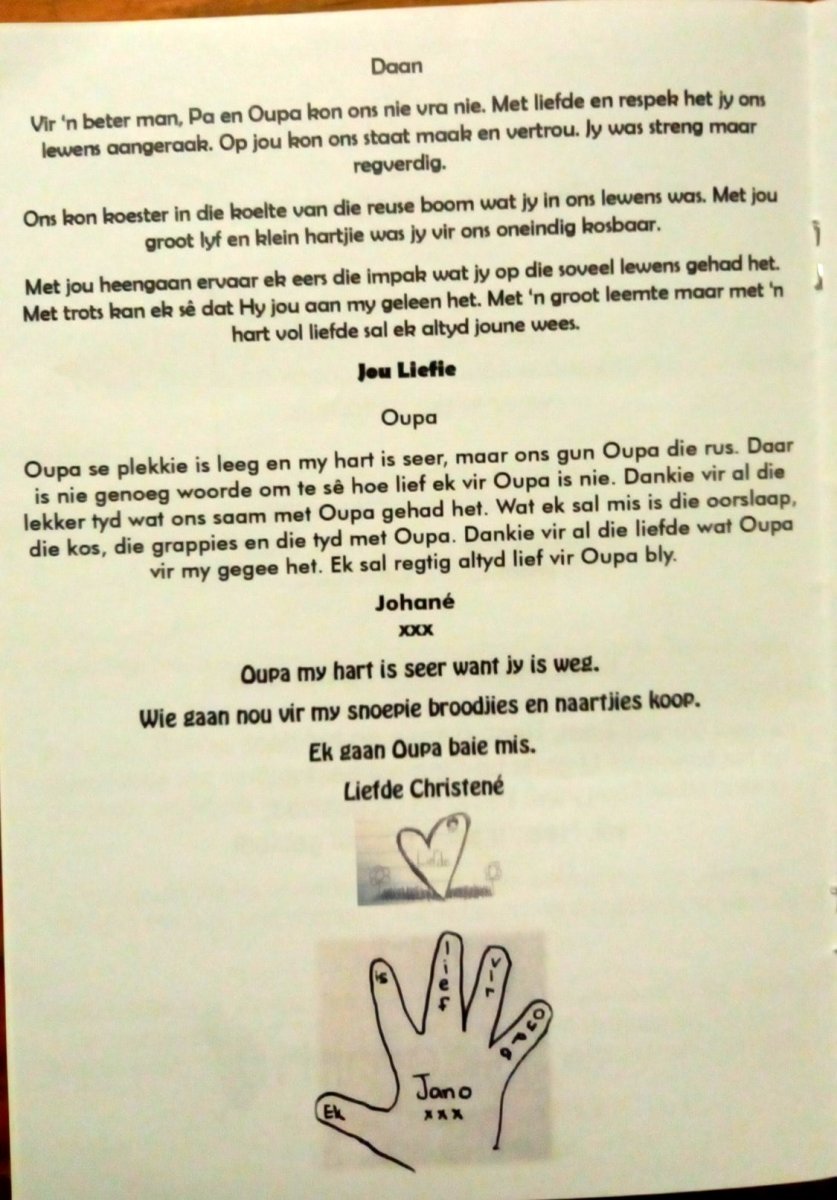 Daan
Vir 'n beter man, Pa en Oupa kon ons nie vra nie. Met liefde en respek het jy ons
lewens aangeraak. Op jou kon ons staat maak en vertrou. Jy was streng maar
regverdig.
Ons kon koester in die koelte van die reuse boom wat jy in ons lewens was. Met jou
groot lyf en klein hartjie was jy vir ons oneindig kosbaar.
Met jou heengaan ervaar ek eers die impak wat jy op die soveel lewens gehad het.
Met trots kan ek sê dat Hy jou aan my geleen het. Met 'n groot leemte maar met 'n
hart vol liefde sal ek altyd joune wees.
Jou Liefie
Oupa
Oupa se plekkie is leeg en my hart is seer, maar ons gun Oupa die rus. Daar
is nie genoeg woorde om te sê hoe lief ek vir Oupa is nie. Dankie vir al die
lekker tyd wat ons saam met Oupa gehad het. Wat ek sal mis is die oorslaap,
die kos, die grappies en die tyd met Oupa. Dankie vir al die liefde wat Oupa
vir my gegee het. Ek sal regtig altyd lief vir Oupa bly.
Johané
xxx
Oupa my hart is seer want jy is weg.
Wie gaan nou vir my snoepie broodjies en naartjies koop.
Ek gaan Oupa baie mis.
Liefde Christené
Liefde
Ek
is
lief
vir
Oupa
Jano
xxx